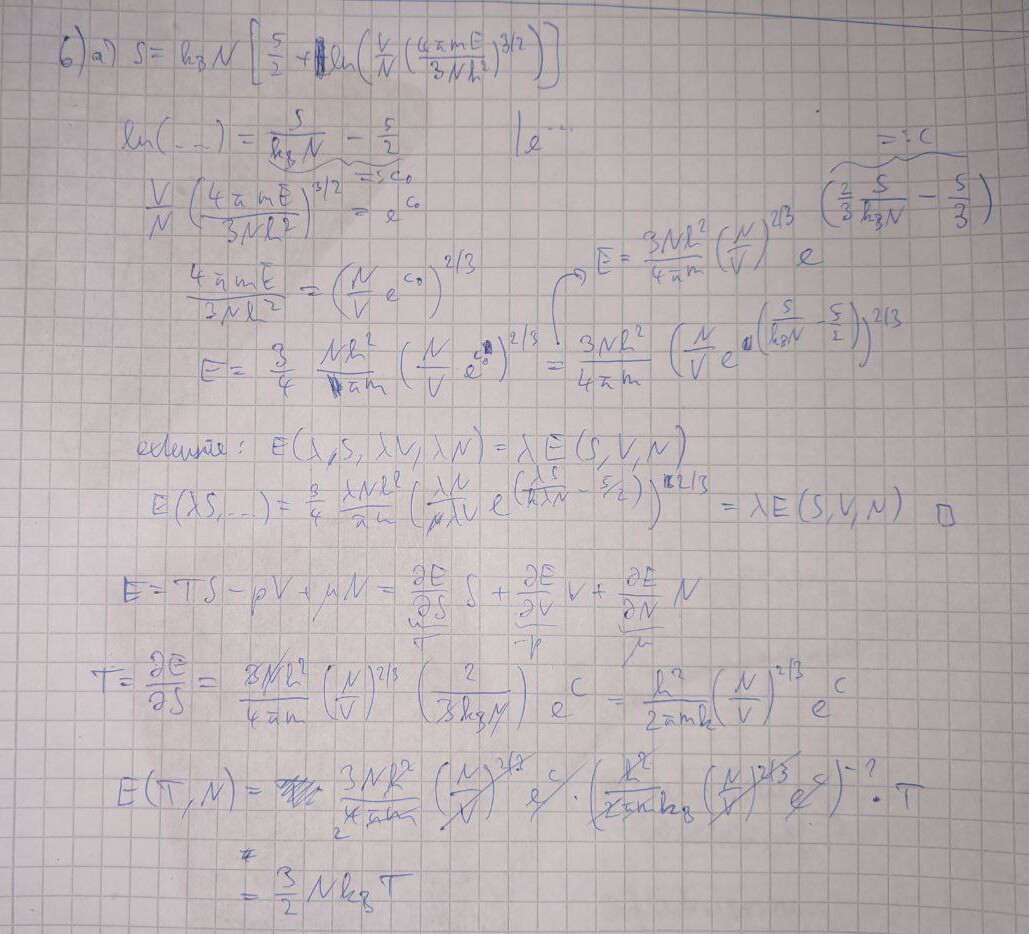 6) a) S = k_B N [5/2 + ln(V/N (4πmE/3Nh²)^3/2)]
ln(...) = S/(k_B N) - 5/2 | e^...
=: c_0
V/N (4πmE/3Nh²)^3/2 = e^c_0
4πmE/3Nh² = (N/V e^c_0)^2/3
E = 3Nh²/4πm (N/V)^2/3 e^(2/3 S/(k_B N) - 5/3)
=: c
E = 3/4 Nh²/πm (N/V e^c_0)^2/3 = 3Nh²/4πm (N/V e^(S/(k_B N) - 5/2))^2/3
E(λ,S, λV, λN) = λE(S,V,N)
E(λS,...) = 3/4 λNh²/πm (λN/λV e^(λS/kλN - 5/2))^2/3 = λE(S,V,N) □
E = TS - pV + μN = ∂E/∂S S + ∂E/∂V V + ∂E/∂N N
T -p μ
T = ∂E/∂S = 3Nh²/4πm (N/V)^2/3 (2/3k_B N) e^c = h²/2πmk (N/V)^2/3 e^c
E(T,N) = 3Nh²/4πm (N/V)^2/3 e^c · (h²/2πmk_B (N/V)^2/3 e^c)^-1 · T
2
= 3/2 N k_B T